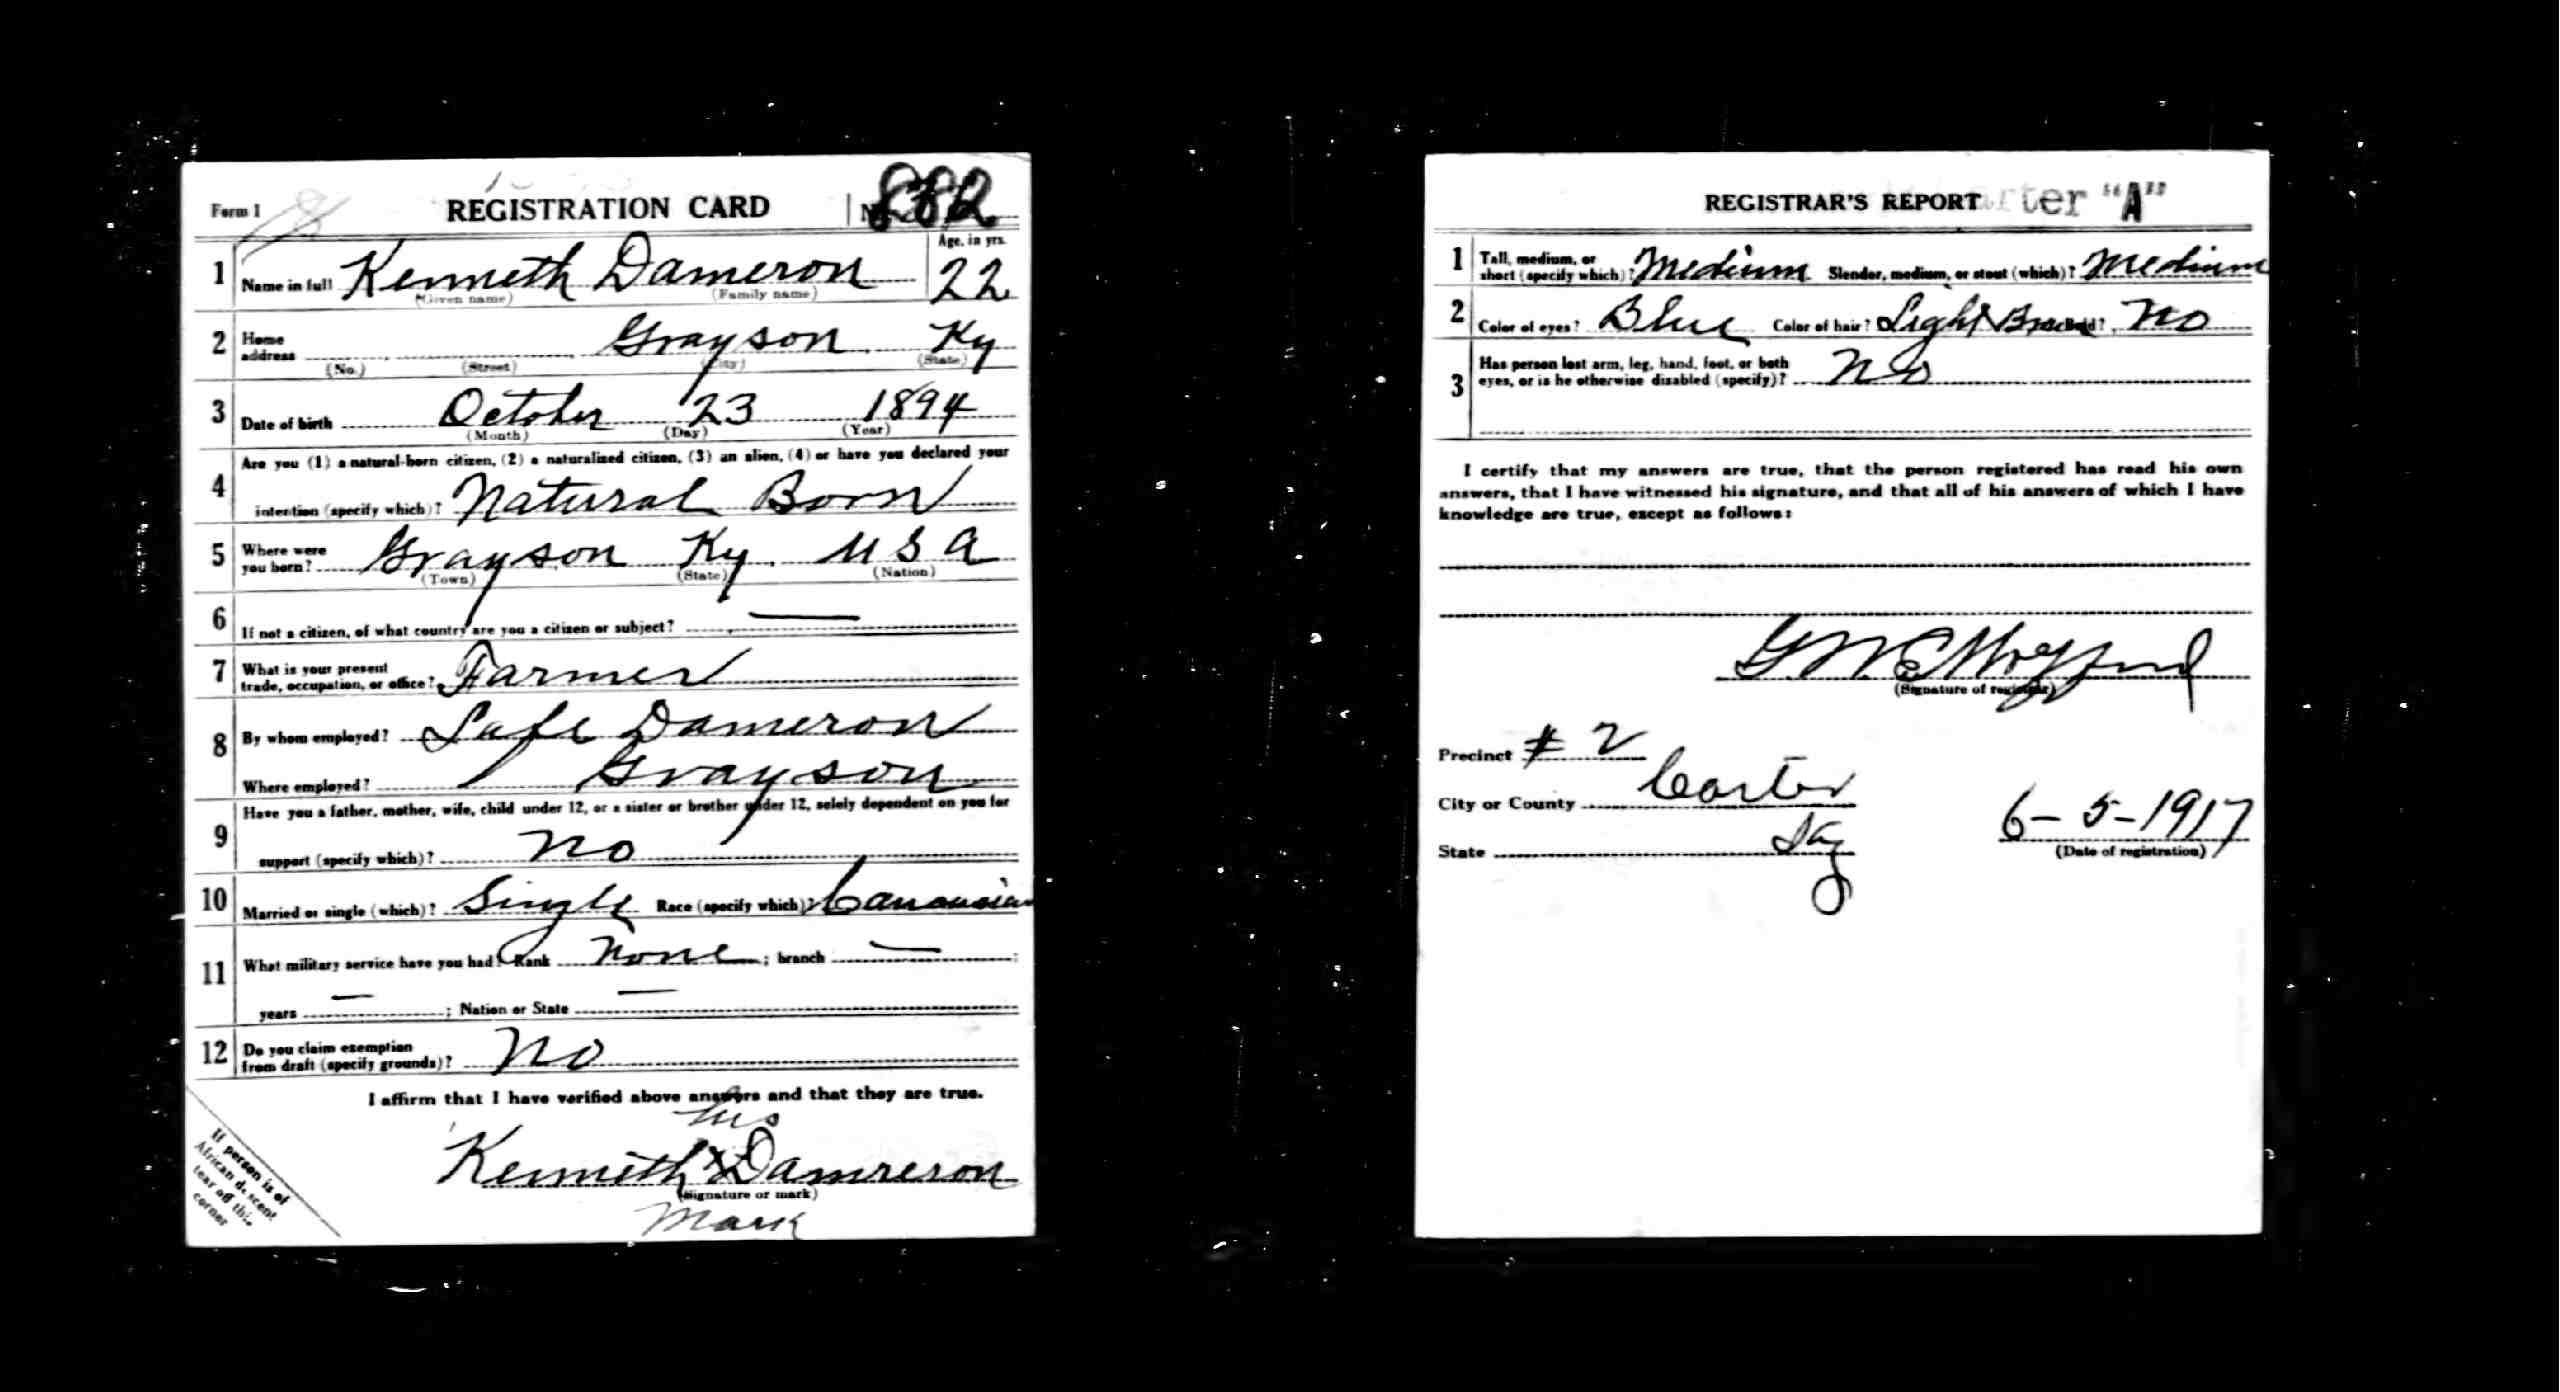 Form 1 REGISTRATION CARD
Age, in yrs.
1 Name in full Kenneth Dameron 22
(Given name) (Family name)
2 Home address Grayson Ky
(No.) (Street) (City) (State)
3 Date of birth October 23 1894
(Month) (Day) (Year)
4 Are you (1) a natural-born citizen, (2) a naturalized citizen, (3) an alien, (4) or have you declared your
intention (specify which)? Natural Born
5 Where were you born? Grayson Ky. U S A
(Town) (State) (Nation)
6 If not a citizen, of what country are you a citizen or subject? —
7 What is your present trade, occupation, or office? Farmer
8 By whom employed? Lafe Dameron
Where employed? Grayson
9 Have you a father, mother, wife, child under 12, or a sister or brother under 12, solely dependent on you for
support (specify which)? No
10 Married or single (which)? Single Race (specify which)? Caucasian
11 What military service have you had? Rank None; branch —;
years —; Nation or State —
12 Do you claim exemption from draft (specify grounds)? No
I affirm that I have verified above answers and that they are true.
his
Kenneth X Damreron
(Signature or mark)
Mark
If person is of
African descent
tear off this
corner
REGISTRAR'S REPORT "A"
1 Tall, medium, or short (specify which)? Medium Slender, medium, or stout (which)? Medium
2 Color of eyes? Blue Color of hair? Light Brown Bald? No
3 Has person lost arm, leg, hand, foot, or both
eyes, or is he otherwise disabled (specify)? No
I certify that my answers are true, that the person registered has read his own
answers, that I have witnessed his signature, and that all of his answers of which I have
knowledge are true, except as follows:
(Signature of registrar)
Precinct # 2
City or County Carter
State Ky
6-5-1917
(Date of registration)